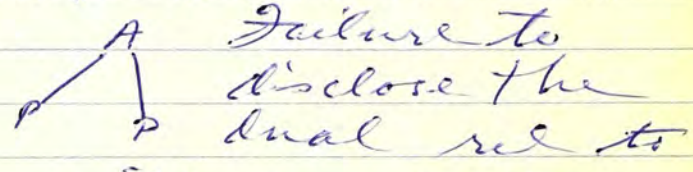 A Failure to
disclose the
P P dual rel to